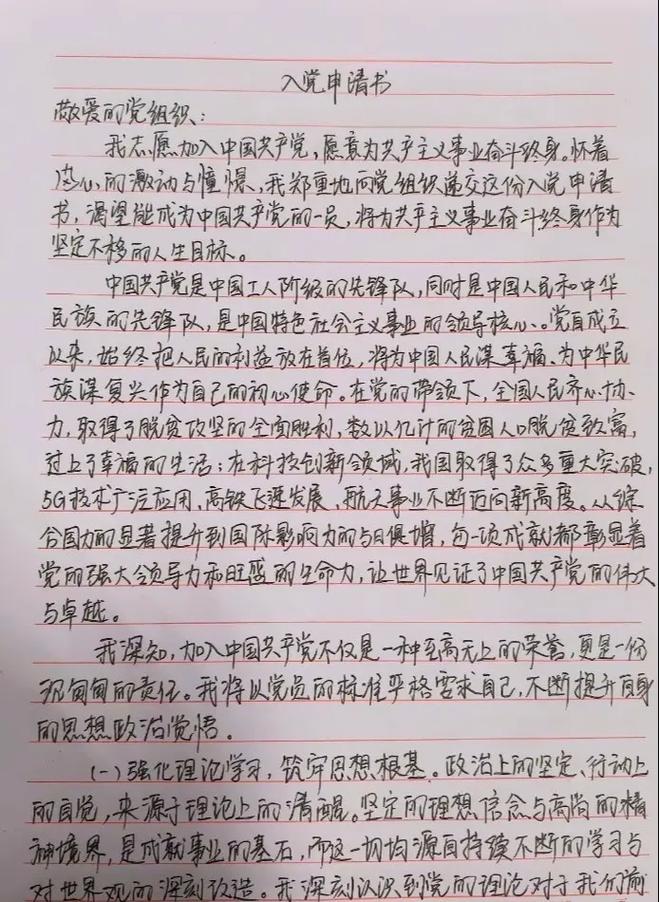 入党申请书
敬爱的党组织：
我志愿加入中国共产党，愿意为共产主义事业奋斗终身。怀着
热心的激动与憧憬，我郑重地向党组织递交这份入党申请
书，渴望能成为中国共产党的一员，将为共产主义事业奋斗终身作为
坚定不移的人生目标。
中国共产党是中国工人阶级的先锋队，同时是中国人民和中华
民族的先锋队，是中国特色社会主义事业的领导核心。党自成立
以来，始终把人民的利益放在首位，将为中国人民谋幸福、为中华民
族谋复兴作为自己的初心使命。在党的带领下，全国人民齐心协
力，取得了脱贫攻坚的全面胜利，数以亿计的贫困人口脱贫致富，
过上了幸福的生活；在科技创新领域，我国取得了众多重大突破，
5G技术广泛应用，高铁飞速发展，航天事业不断迈向新高度。从综
合国力的显著提升到国际影响力的与日俱增，每一项成就都彰显着
党的强大领导力和旺盛的生命力，让世界见证了中国共产党的伟大
与卓越。
我深知，加入中国共产党不仅是一种至高无上的荣誉，更是一份
沉甸甸的责任。我将以党员的标准严格要求自己，不断提升自身
的思想政治觉悟。
（一）强化理论学习，筑牢思想根基。政治上的坚定、行动上
的自觉，来源于理论上的清醒。坚定的理想信念与高尚的精
神境界，是成就事业的基石，而这一切均源自持续不断的学习与
对世界观的深刻改造。我深刻认识到党的理论对于我们前